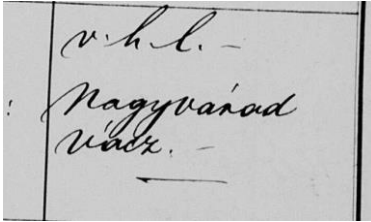 v. h. l. –
Nagyvárad
Vácz. –